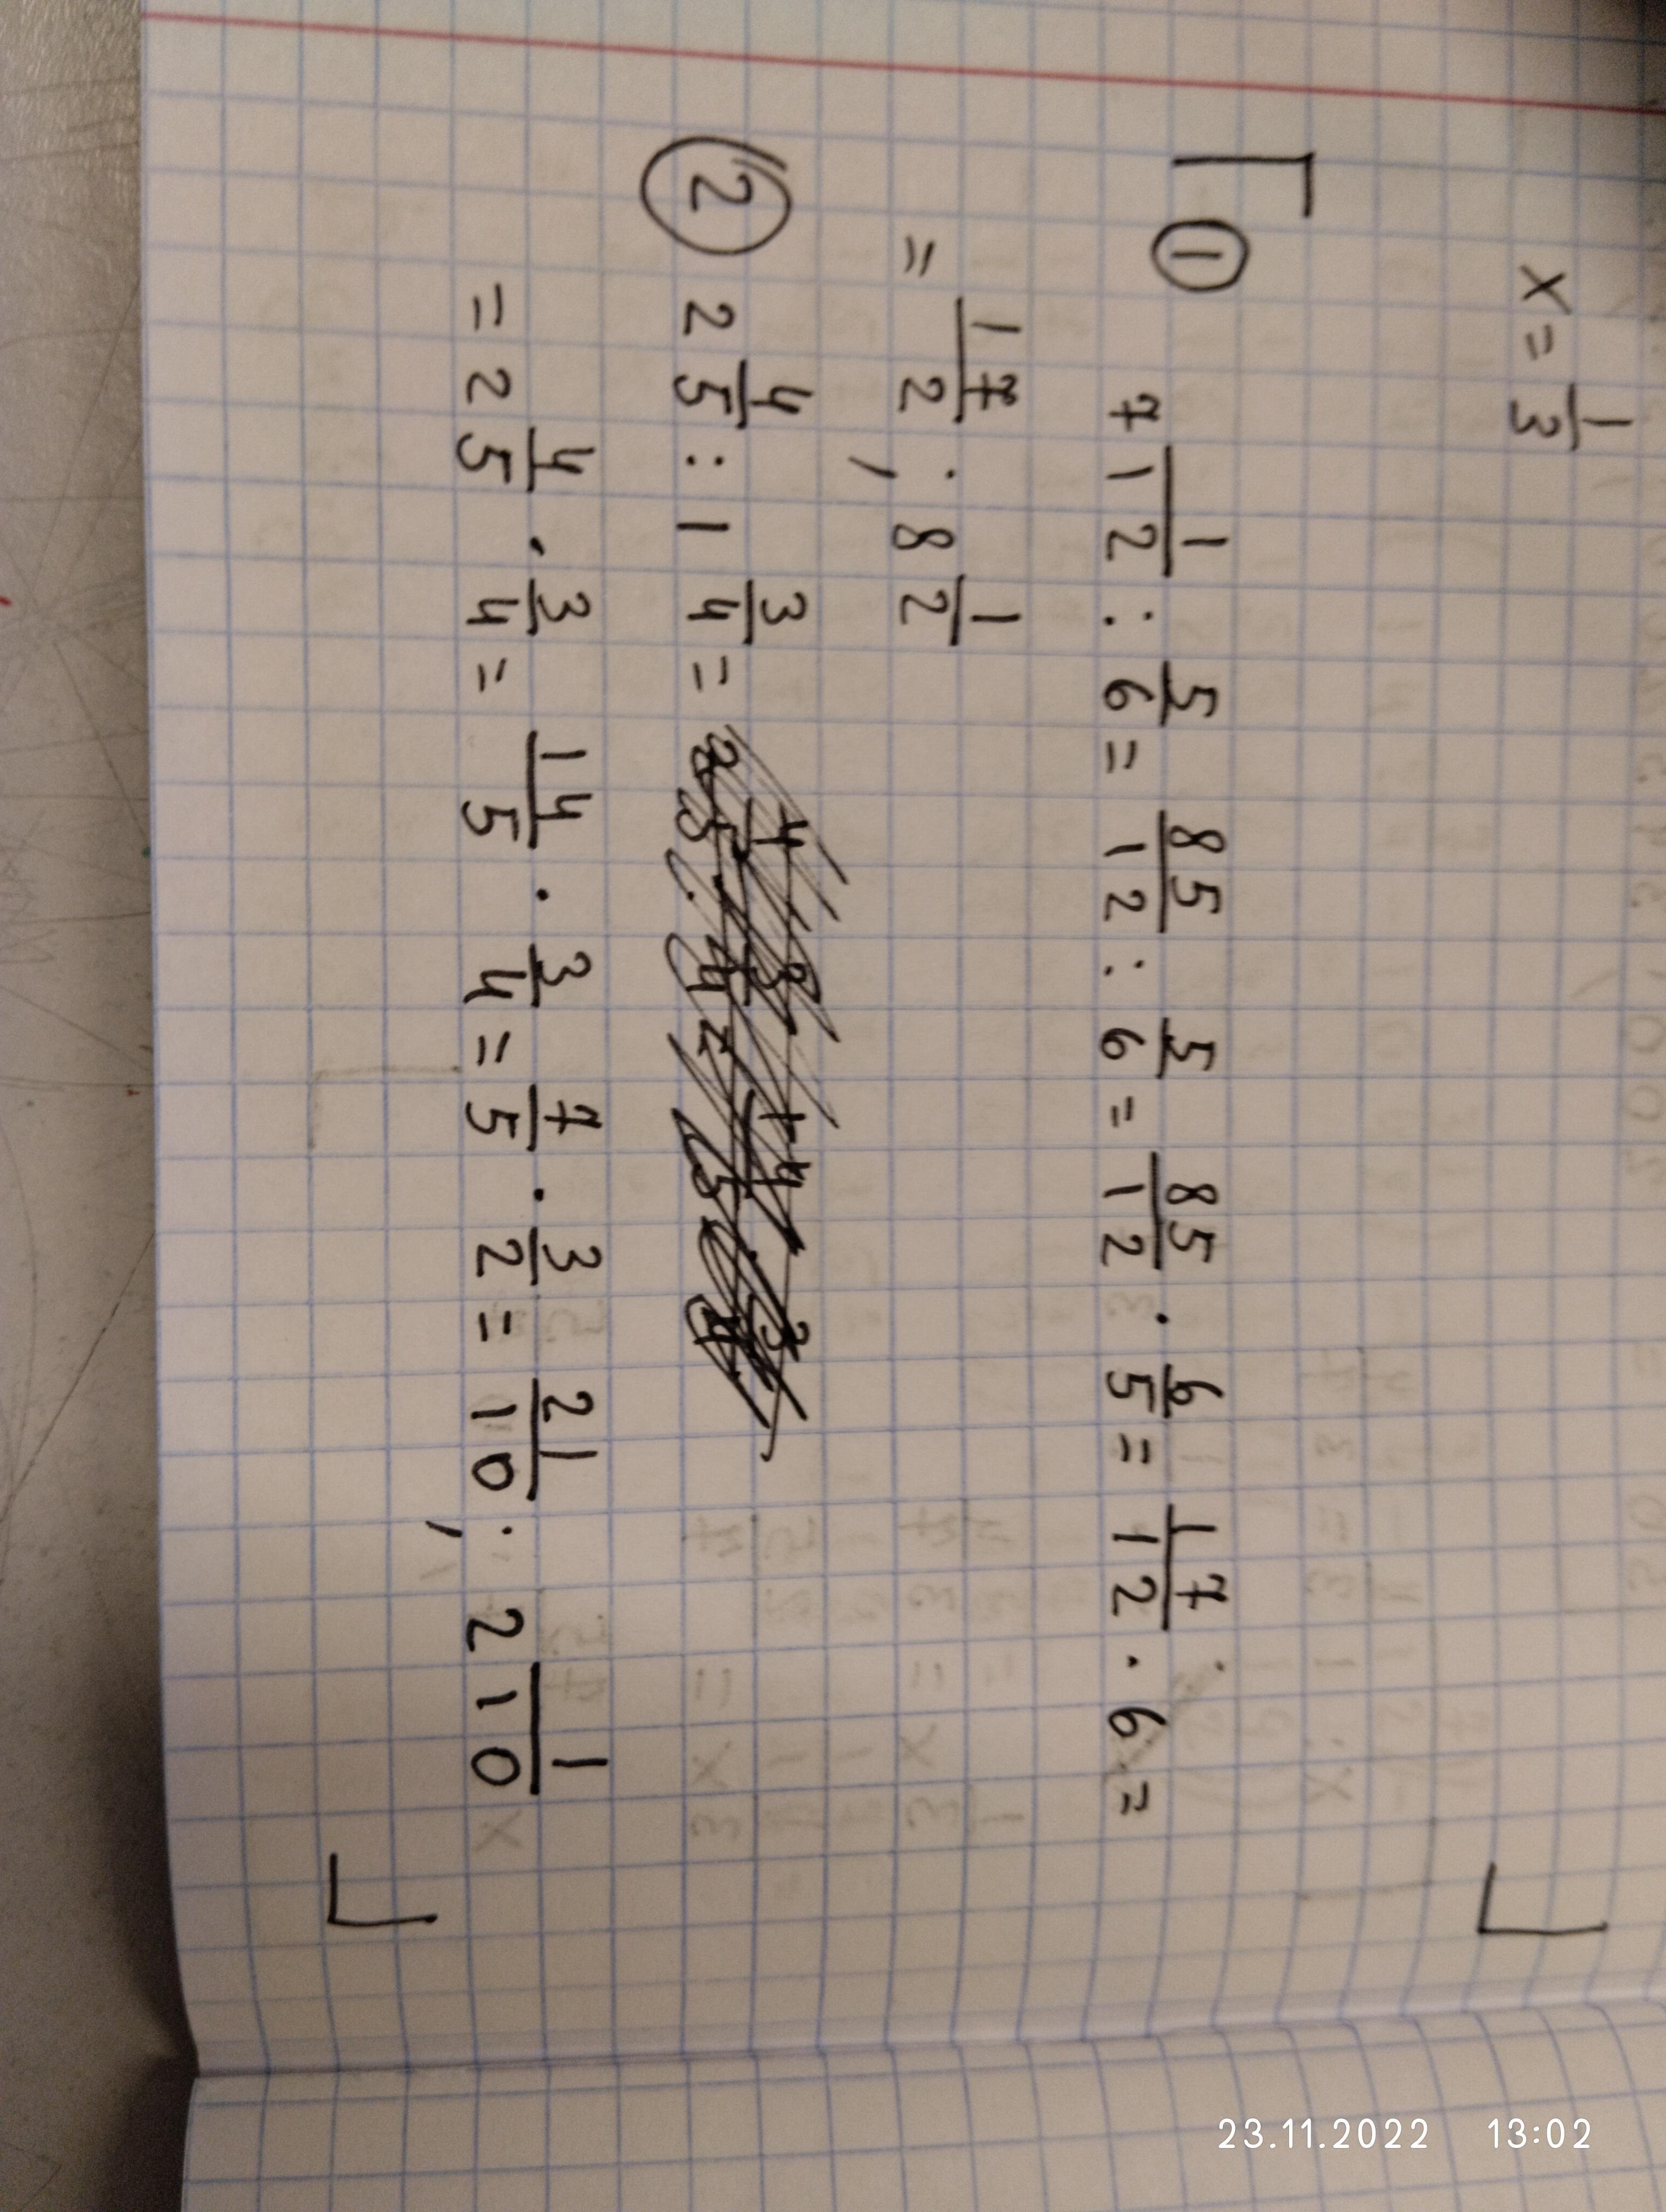 x = 1/3
① 7 1/12 : 5/6 = 85/12 : 5/6 = 85/12 · 6/5 = 17/12 · 6 =
= 17/2 ; 8 1/2
② 2 4/5 : 1 3/4 =
= 2 4/5 · 3/4 = 14/5 · 3/4 = 7/5 · 3/2 = 21/10 ; 2 1/10
23.11.2022 13:02